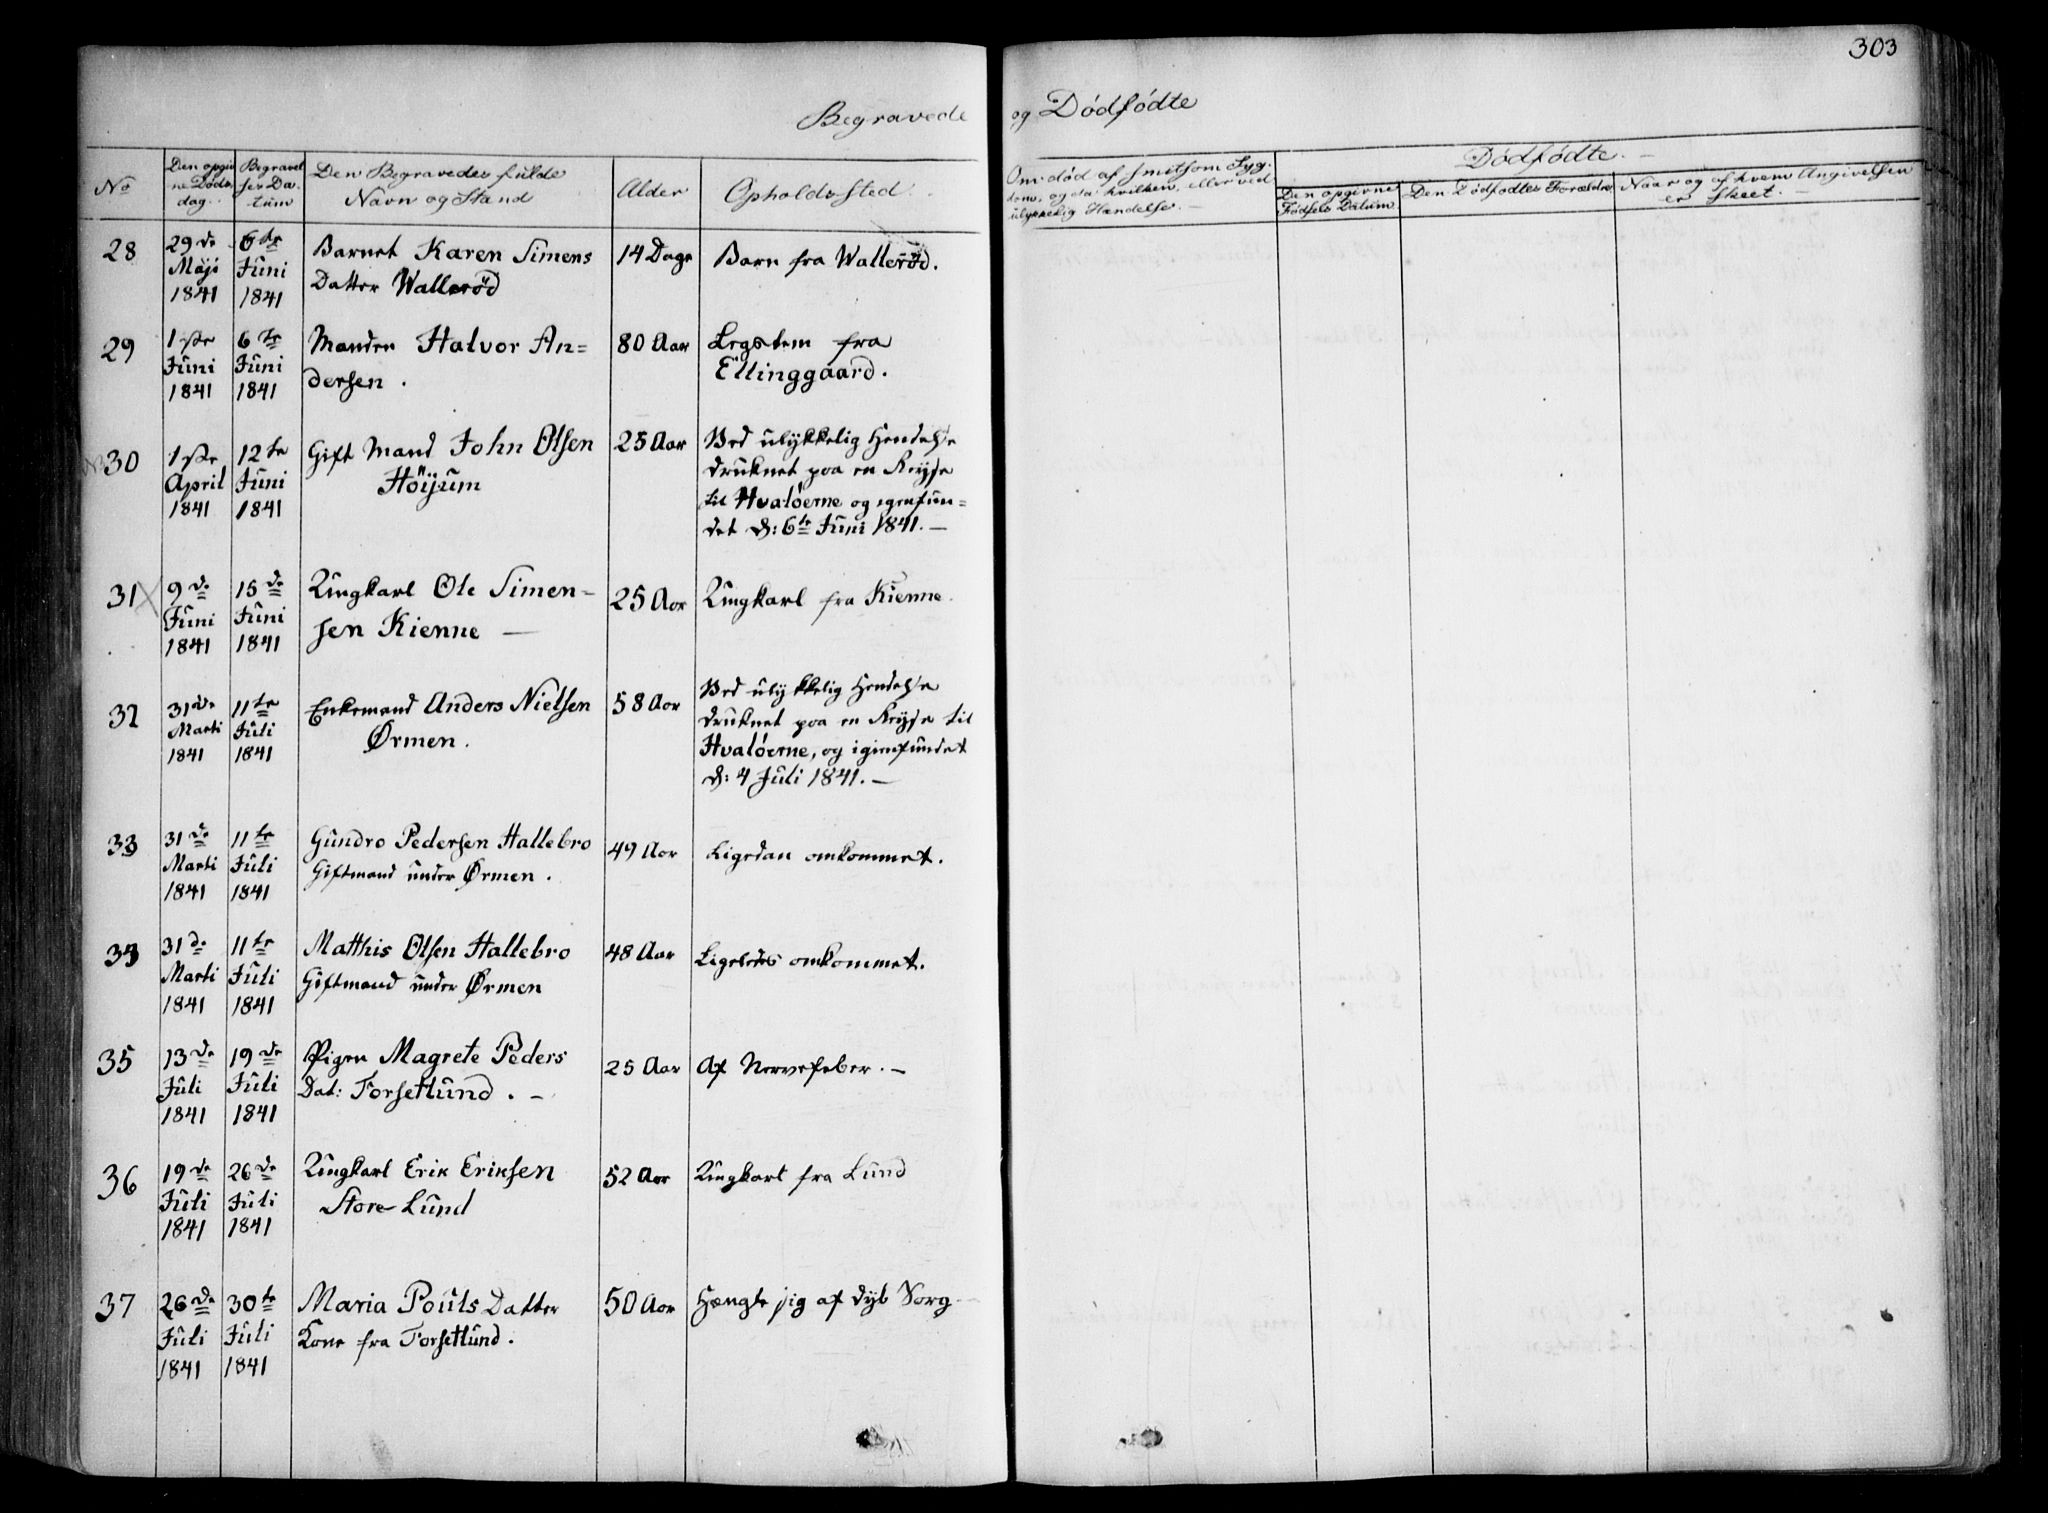 303
Begravede og Dödfödte
No
Den opgiv
ne Döds
dag.
Begravel
ses Da-
tum
Den Begravedes fulde
Navn og Stand
Alder
Opholds-Sted.
Om död af smitsom Syg-
dom, og da hvilken, eller ved
ulykkelig Hændelse. -
Dödfödte. -
Den opgivne
Födsels Datum
Den Dödfödtes Forældre
Naar og af hvem Angivelsen
er skeet. -
28
29de Maji 1841
6te Juni 1841
Barnet Karen Simens
Datter Walleröd
14 Dage
Barn fra Walleröd.
29
1ste Juni 1841
6te Juni 1841
Manden Halvor An=
dersen.
80 Aar
Legstem fra
Ellinggaard.
30
1ste April 1841
12te Juni 1841
Gift Mand John Olsen
Höijum
25 Aar
Ved ulykkelig Hendelse
druknet paa en Reijse
til Hvalöerne og igenfun=
det d: 6te Juni 1841. -
31
9de Juni 1841
15de Juni 1841
Ungkarl Ole Simen-
sen Kienne -
25 Aar
Ungkarl fra Kienne
32
31de Marti 1841
11te Juli 1841
Enkemand Anders Nielsen
Ørmen.
58 Aar
Ved ulykkelig Hendelse
druknet paa en Reijse til
Hvalöerne, og igienfundet
d: 4 Juli 1841. -
33
31de Marti 1841
11te Juli 1841
Gundro Pedersen Hallebro
Giftmand under Ørmen.
49 Aar
Ligedan omkommet.
34
31de Marti 1841
11te Juli 1841
Matthis Olsen Hallebro
Giftmand under Ørmen
48 Aar
Ligeledes omkommet.
35
13de Juli 1841
19de Juli 1841
Pigen Magrete Peders
Dat: Torsetlund. -
25 Aar
Af Nervefeber. -
36
19de Juli 1841
26de Juli 1841
Ungkarl Erik Eriksen
Store Lund
52 Aar
Ungkarl fra Lund
37
26de Juli 1841
30te Juli 1841
Maria Pouls Datter
Kone fra Torsetlund.
50 Aar
Hængte sig af dyb Sorg -